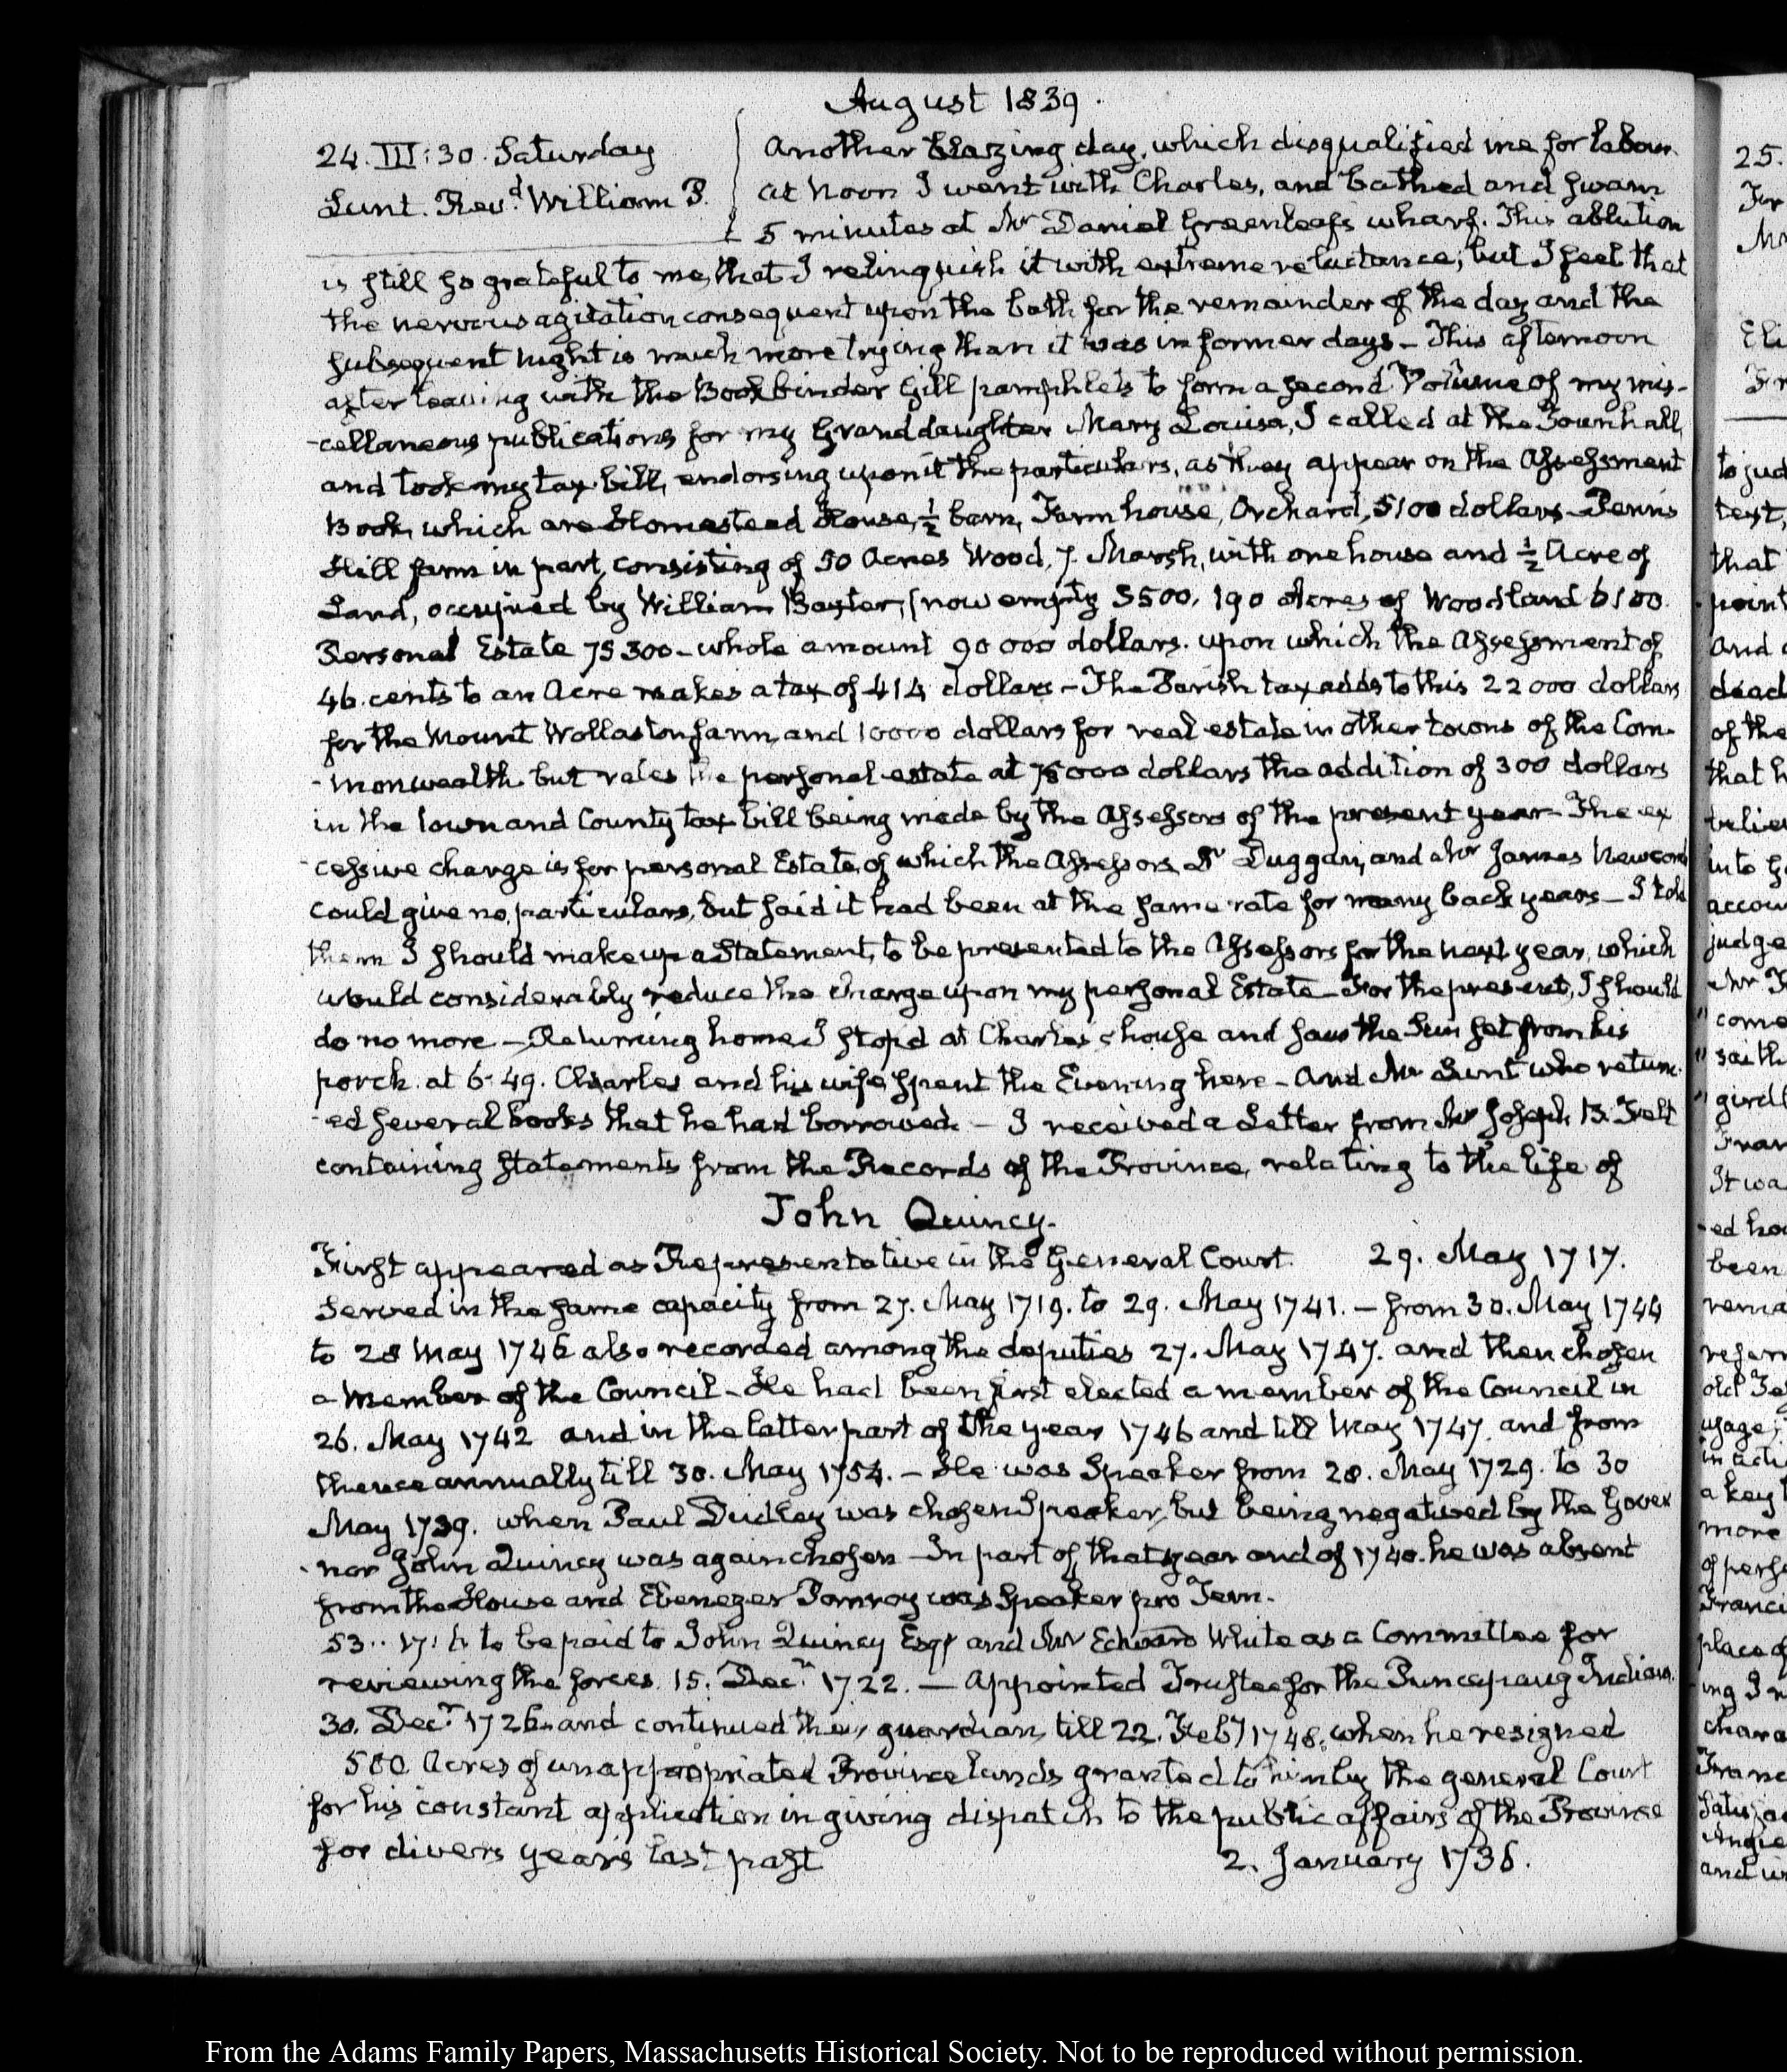 August 1839.
24. III: 30. Saturday
Lunt. Revd. William P.
Another blazing day, which disqualified me for labour.
at Noon I went with Charles, and bathed and swam
5 minutes at Mr Daniel Greenleaf's wharf. This ablution
is still so grateful to me, that I relinquish it with extreme reluctance; but I feel that
the nervous agitation consequent upon the bath for the remainder of the day and the
subsequent night is much more trying than it was in former days – This afternoon
after leaving with the Bookbinder Gill pamphlets to form a second Volume of my mis-
-cellaneous publications for my Granddaughter Mary Louisa, I called at the Townhall,
and took my tax bill, endorsing upon it the particulars, as they appear on the Assessment
Book, which are Homestead House, ½ barn, Farm house, Orchard, 5100 dollars – Penn's
Hill farm in part, consisting of 50 Acres Wood, 7. Marsh, with one house and ½ Acre of
Land, occupied by William Baxter, (now empty 3500, 190 Acres of Woodland 6100.
Personal Estate 75300 – whole amount 90000 dollars. upon which the Assessment of
46. cents to an Acre makes a tax of 414 dollars – The Parish tax adds to this 22000 dollars
for the Mount Wollaston farm, and 10000 dollars for real estate in other towns of the Com-
-monwealth but rates the personal estate at 75000 dollars the addition of 300 dollars
in the Town and County tax bill being made by the Assessors of the present year – The ex
-cessive charge is for personal Estate, of which the Assessors Dr Duggan, and Mr James Newcomb
could give no particulars, but said it had been at the same rate for many back years – I told
them I should make up a Statement, to be presented to the Assessors for the next year, which
would considerably reduce the charge upon my personal Estate – For the present, I should
do no more – Returning home I stop'd at Charles's house and saw the Sun set from his
porch at 6–49. Charles and his wife spent the Evening here – And Mr Lunt who return-
-ed several books that he had borrowed. – I received a Letter from Mr Joseph B. Felt
containing statements from the Records of the Province, relating to the life of
John Quincy.
First appeared as Representative in the General Court. 29. May 1717.
Served in the same capacity from 27. May 1719. to 29. May 1741. – from 30. May 1744
to 28 May 1746 also recorded among the deputies 27. May 1747. and then chosen
a member of the Council – He had been first elected a member of the Council in
26. May 1742 and in the latter part of the year 1746 and till May 1747. and from
thence annually till 30. May 1754. – He was Speaker from 28. May 1729. to 30
May 1739. when Paul Dudley was chosen Speaker, but being negatived by the Gover
-nor John Quincy was again chosen – In part of that year and of 1740. he was absent
from the House and Ebenezer Pomroy was Speaker pro Tem.
53.. 17: to be paid to John Quincy Esqr and Mr Edward White as a Committee for
reviewing the forces. 15. Decr. 1722. – Appointed Trustee for the Puncapaug Indians.
30. Decr. 1726. and continued their guardian, till 22. Feby 1748. when he resigned
500. Acres of unappropriated Province lands granted to him by the general Court
for his constant application in giving dispatch to the public affairs of the Province
for divers years last past 2. January 1736.
25.
to jud
text,
that
point
and
dead
of the
that h
believ
into
accou
judge
" come
" saith
" girdl
Fran
It wa
-ed ho
been
rema
referr
old
usage;
in
a key
more
of perso
Franci
place of
-ing
chara
Franc
and
From the Adams Family Papers, Massachusetts Historical Society. Not to be reproduced without permission.